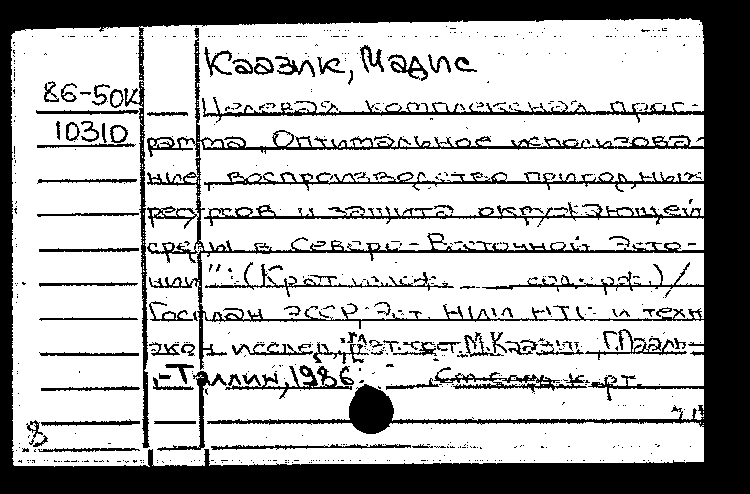 Каазик, Мадис
86-50К
Целевая комплексная прог-
10310
рамма „Оптимальное использова-
ние, воспроизводство природных
ресурсов и защита окружающей
среды в Северо-Восточной Эсто-
нии": (Крат. излож. содерж.) /
Госплан ЭССР. Эст. НИИ НТИ и техн
экон исслед.; М. Каазик, Г. Пааль-
,-Таллин, 1986.
к-рт.
8